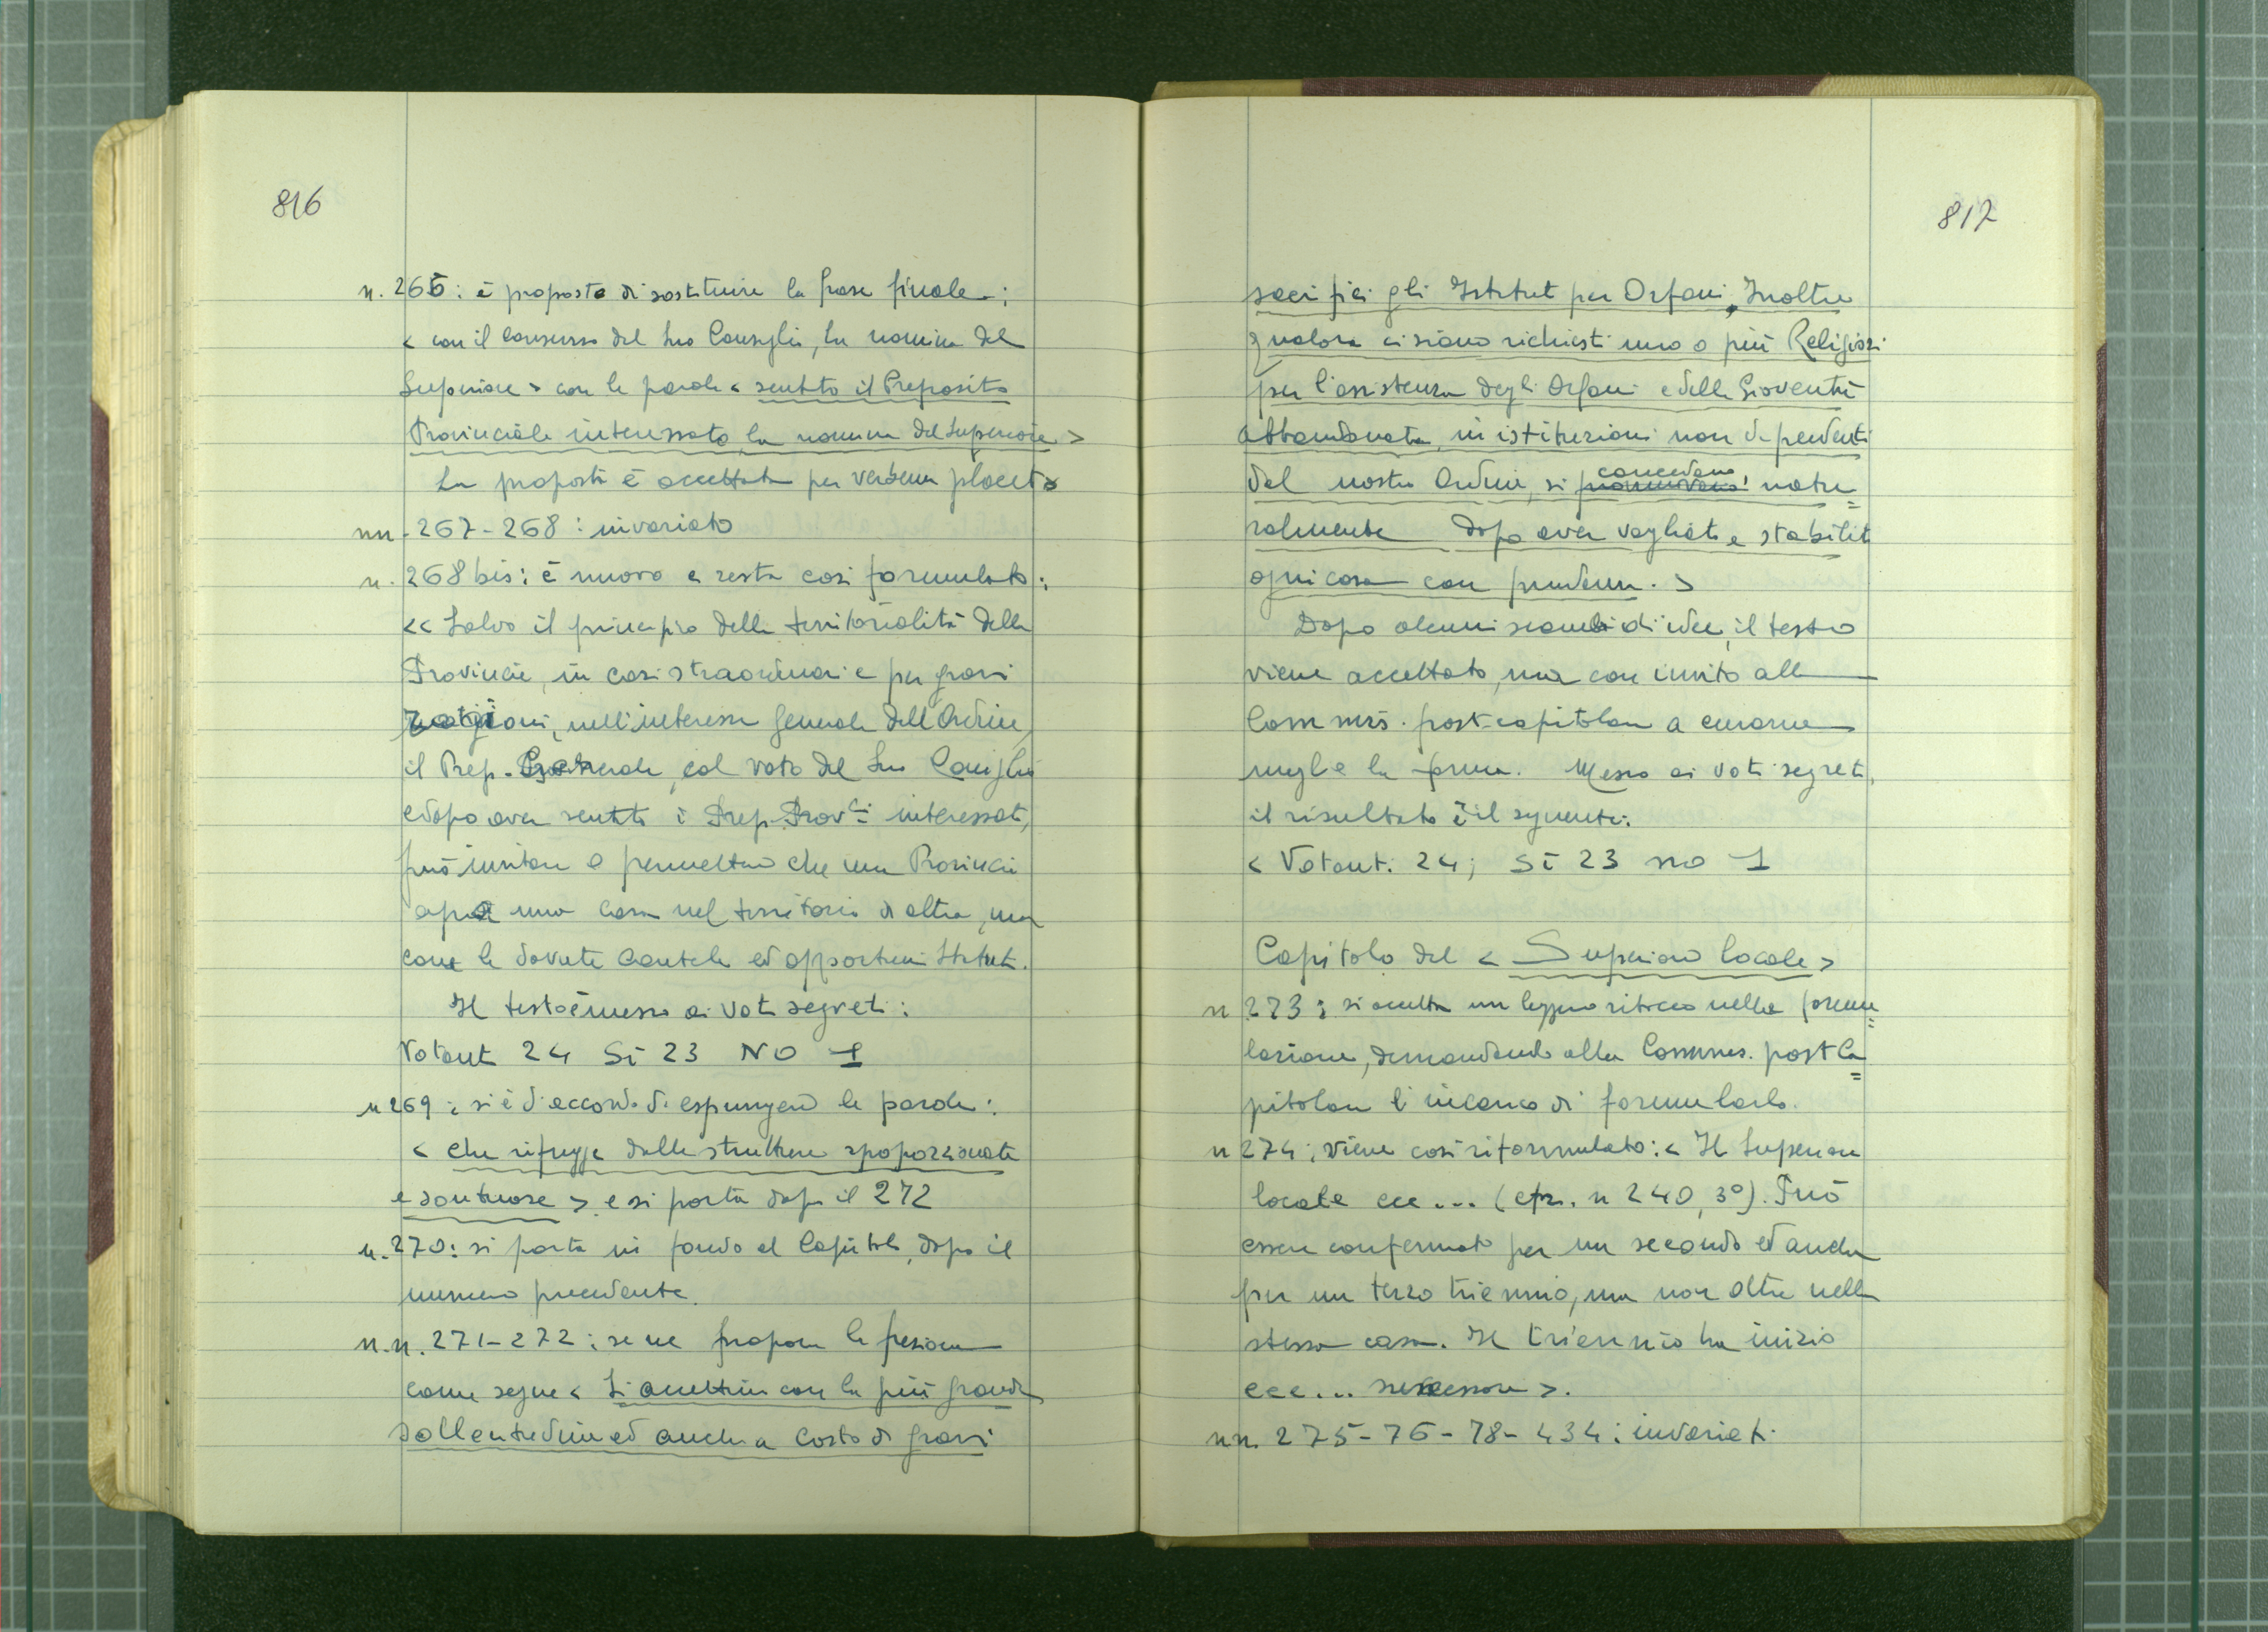 816
n. 266: è proposto di sostituire la frase finale:
< con il consenso del suo Consiglio, la nomina del
Superiore > con le parole < sentito il Preposito
Provinciale interessato, la nomina del Superiore >
La proposta è accettata per verbum placet
nn. 267-268: invariato
n. 268 bis: è nuovo e resta così formulato:
<< Salvo il principio della territorialità delle
Provincie, in casi straordinari e per gravi
ragioni, nell'interesse generale dell'Ordine,
il Prep. Generale, col voto del suo Consiglio
e dopo aver sentiti i Prep. Prov.li interessati,
può invitare o permettere che una Provincia
apra una casa nel territorio di altra, ma
con le dovute cautele ed opportuni Statuti.
Il testo è messo ai voti segreti:
Votanti 24 Sì 23 NO 1
n 269: si è d'accordo di espungere le parole:
< che rifugge dalle strutture spoporzionate
e sontuose > e si porta dopo il 272
n. 270: si porta in fondo al Capitolo, dopo il
numero precedente.
n.n. 271-272: se ne propone la fusione
come segue < Si accettino con la più grande
sollecitudine ed anche a costo di gravi
817
sacrifici gli Istituti per Orfani. Inoltre
qualora ci siano richiesti uno o più Religiosi
per l'assistenza degli Orfani e della Gioventù
abbandonata, in istituzioni non dipendenti
dal nostro Ordine, si concedano, natu=
ralmente dopo aver vagliato e stabilito
ogni cosa con prudenza. >
Dopo alcuni scambi di idee, il testo
viene accettato, ma con invito alla
Commis. post-capitolare a curarne
meglio la forma. Messo ai voti segreti,
il risultato è il seguente:
< Votanti 24; Sì 23 no 1
Capitolo del < Superiore locale >
n 273: si accetta un leggero ritocco nella formu=
lazione, demandando alla Commis. post Ca=
pitolare l'incarico di formularlo.
n 274: viene così riformulato: < Il Superiore
locale ecc... (cfr. n 240, 3°). Può
essere confermato per un secondo ed anche
per un terzo triennio, ma non oltre nella
stessa casa. Il triennio ha inizio
ecc... successore >.
nn. 275-76-78-434: invariati